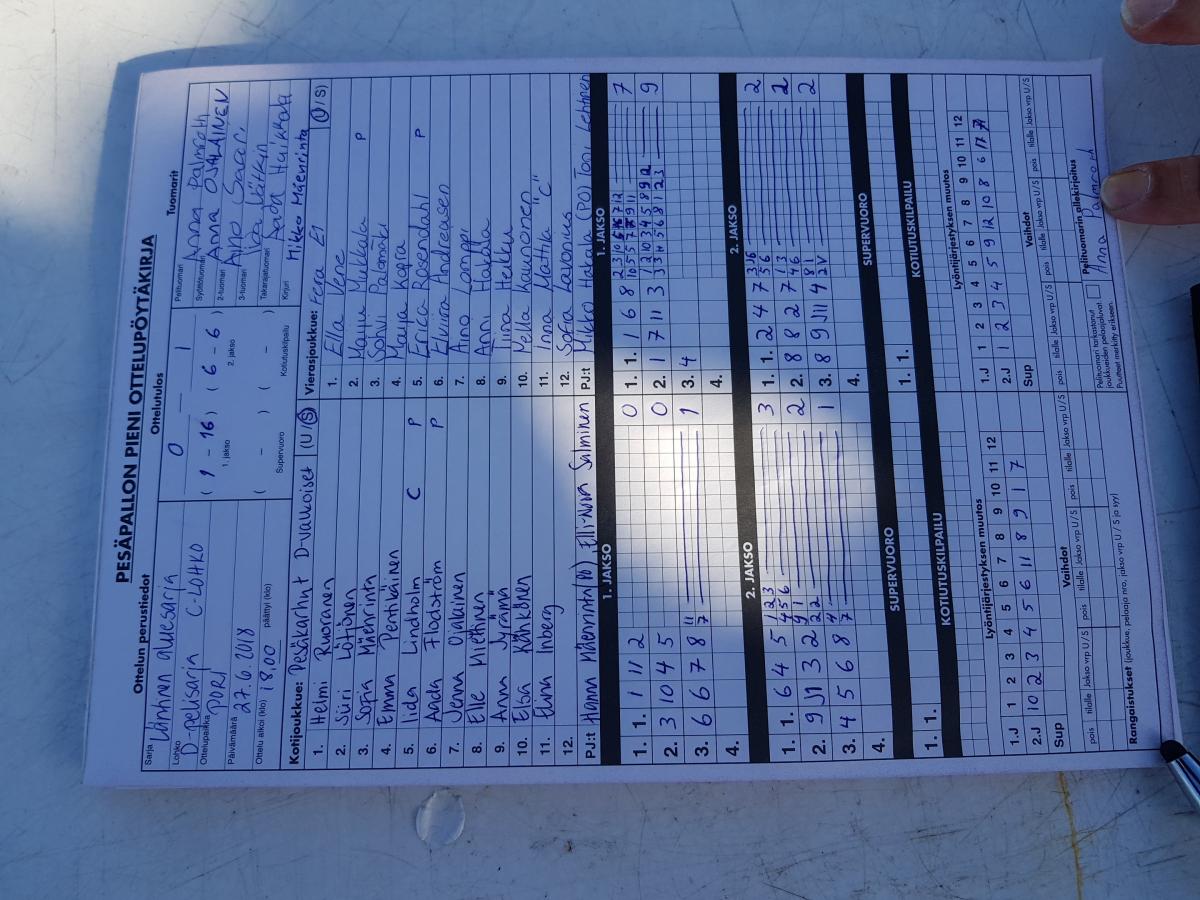 PESÄPALLON PIENI OTTELUPÖYTÄKIRJA
Ottelun perustiedot
Sarja Läntinen aluesarja
Lohko D-pelisarja C-LOHKO
Ottelupaikka PORI
Päivämäärä 27.6.2018
Ottelu alkoi (klo) 18.00 päättyi (klo)
Ottelutulos
0 — 1
( 1 - 16 ) ( 6 - 6 )
1. jakso 2. jakso
( - ) ( - )
Supervuoro Kotiutuskilpailu
Tuomarit
Pelituomari Anna Palmroth
Syöttötuomari Anna OJALAINEN
2-tuomari Aino Saari
3-tuomari Iida
Takarajatuomari Haikkala
Kirjuri Mikko Mäenrinta
Kotijoukkue: Pesäkarhut D-valkoiset (U / S)
1. Helmi Ruoranen
2. Siiri Löytönen
3. Sofia Mäenrinta
4. Emma Pentikäinen
5. Iida Lindholm C P
6. Aada Flodström P
7. Jenna Ojalainen
8. Elle Miettinen
9. Anna Jyrämä
10. Elsa Kähkönen
11. Elina Inberg
12.
PJ:t Hanna Mäenrinta (PJ), Elli-Noora Salminen
Vierasjoukkue: Fera E1 (U / S)
1. Ella Vene
2. Maiju Mikkola P
3. Solvi Palomäki
4. Marja Kopra
5. Erica Rosendahl P
6. Elviira Andreasen
7. Aino Lamppi
8. Anni Hakala
9. Iiina Heikku
10. Nella Kaunonen
11. Inna Mattila "C"
12. Sofia Lavonius
PJ:t Mikko Hakala (PJ) Toni Lehtinen
1. JAKSO
1. 1. 1 11 2 0
2. 3 10 4 5 0
3. 6 6 7 8 7 11 1
4.
1. JAKSO
1. 1. 1 6 8 7
2. 1 7 11 3 9
3. 4
4.
2. JAKSO
1. 1. 6 4 5 1 2 3 4 5 6 3
2. 9 J1 3 2 9 1 2 2 2
3. 4 5 6 8 7 4 1
4.
2. JAKSO
1. 1. 2 4 7 2
2. 8 8 2 7 1 3 4 6 2
3. 8 9 J11 4 8 1 2 V 2
4.
SUPERVUORO
1. 1.
SUPERVUORO
1. 1.
KOTIUTUSKILPAILU
KOTIUTUSKILPAILU
Lyöntijärjestyksen muutos
1.J 1 2 3 4 5 6 7 8 9 10 11 12
2.J 10 2 3 4 5 6 11 8 9 1 7
Sup
Vaihdot
pois tilalle Jakso vrp U / S pois tilalle Jakso vrp U / S pois tilalle Jakso vrp U / S
Lyöntijärjestyksen muutos
1.J 1 2 3 4 5 6 7 8 9 10 11 12
2.J 1 2 3 4 5 9 12 10 8 6 11 7
Sup
Vaihdot
pois tilalle Jakso vrp U / S pois tilalle Jakso vrp U / S pois tilalle Jakso vrp U / S
Rangaistukset (joukkue, pelaaja nro, jakso vrp U / S ja syy)
Pelituomari tarkastanut joukkueiden pelaajaluvat. Puutteet merkitty erikseen.
Pelituomarin allekirjoitus
Anna Palmroth